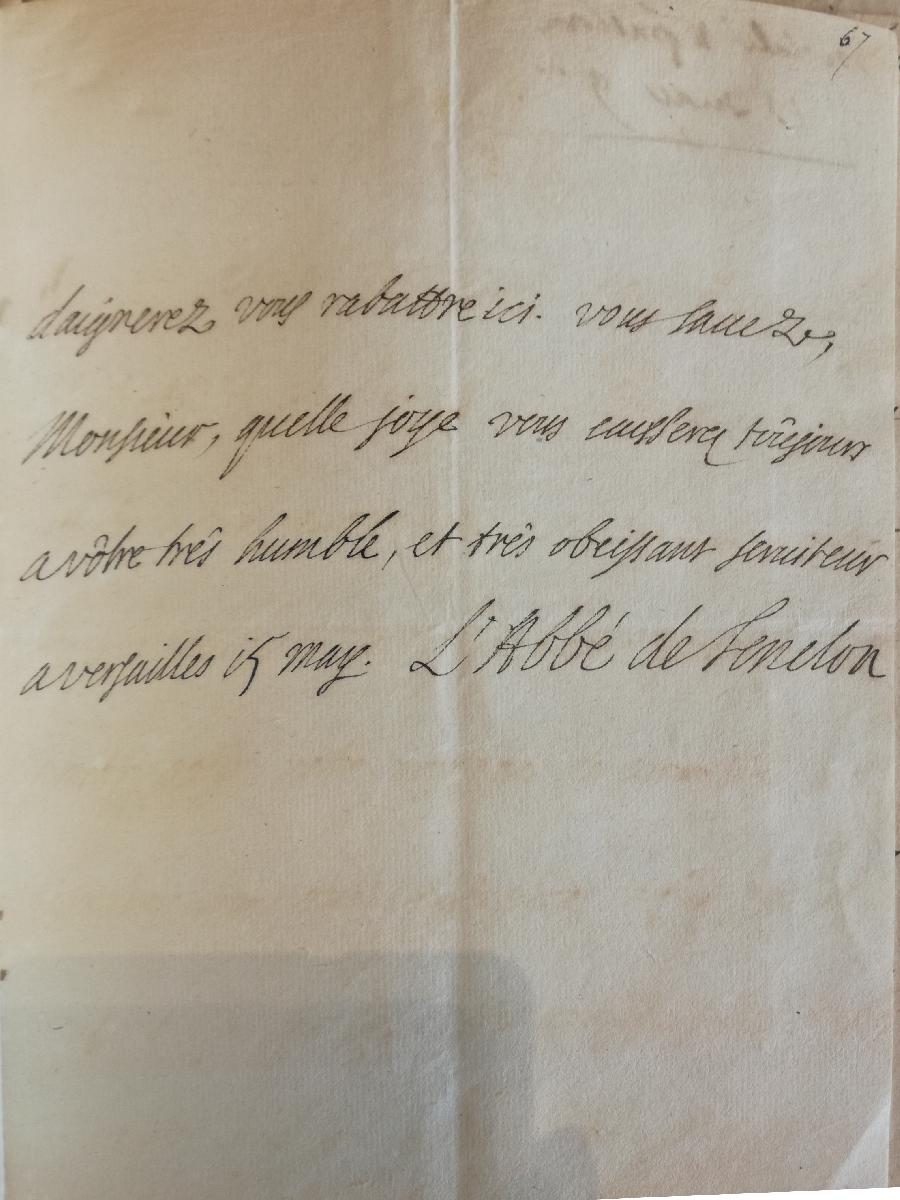 67
daignerez vous rabattre ici. vous sauez,
Monsieur, quelle joye vous causerez toûjours
a vôtre três humble, et três obeissant seruiteur
a versailles 15 may. L'Abbé de Fenelon